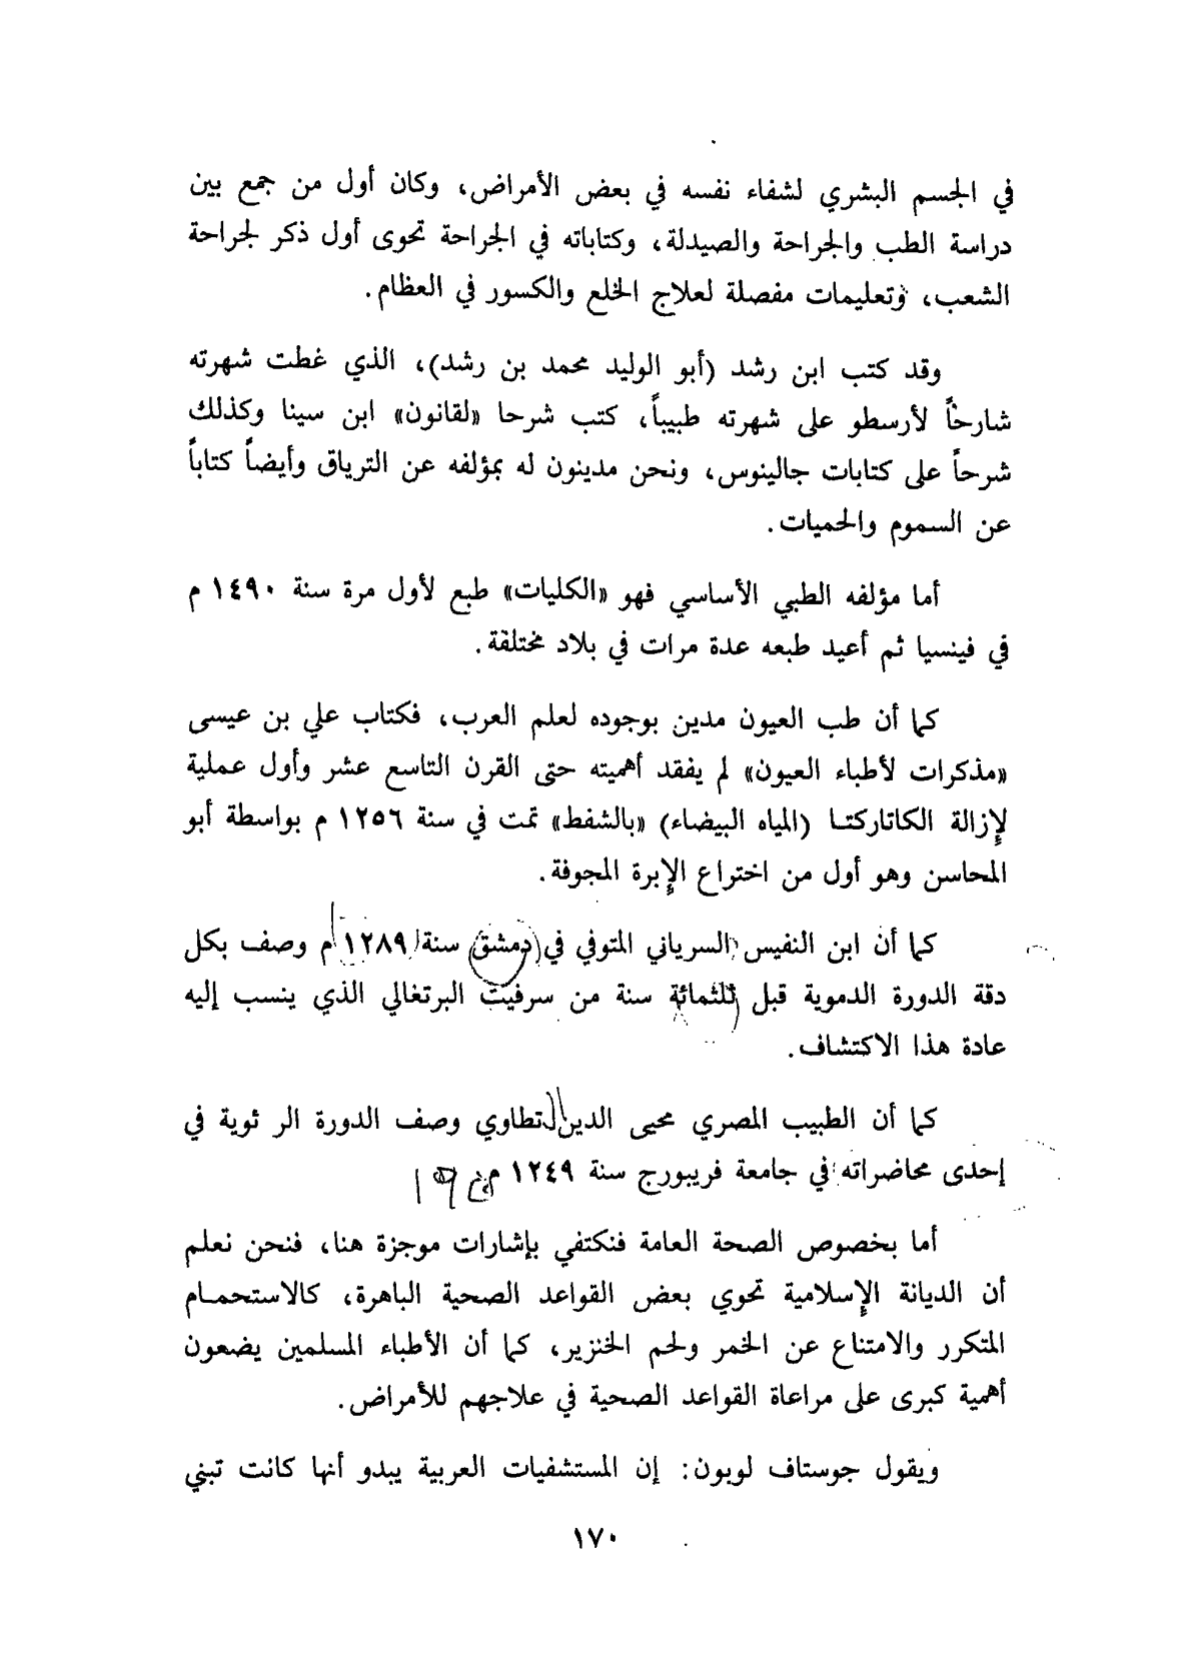 في الجسم البشري لشفاء نفسه في بعض الأمراض، وكان أول من جمع بين
دراسة الطب والجراحة والصيدلة، وكتاباته في الجراحة تحوى أول ذكر لجراحة
الشعب، وتعليمات مفصلة لعلاج الخلع والكسور في العظام.
وقد كتب ابن رشد (أبو الوليد محمد بن رشد)، الذي غطت شهرته
شارحاً لأرسطو على شهرته طبيباً، كتب شرحا «لقانون» ابن سينا وكذلك
شرحاً على كتابات جالينوس، ونحن مدينون له بمؤلفه عن الترياق وأيضاً كتاباً
عن السموم والحميات.
أما مؤلفه الطبي الأساسي فهو «الكليات» طبع لأول مرة سنة ١٤٩٠ م
في فينسيا ثم أعيد طبعه عدة مرات في بلاد مختلفة.
كما أن طب العيون مدين بوجوده لعلم العرب، فكتاب علي بن عيسى
«مذكرات لأطباء العيون» لم يفقد أهميته حتى القرن التاسع عشر وأول عملية
لإزالة الكاتاركتا (المياه البيضاء) «بالشفط» تمت في سنة ١٢٥٦ م بواسطة أبو
المحاسن وهو أول من اختراع الإبرة المجوفة.
كما أن ابن النفيس السرياني المتوفي في دمشق سنة ١٢٨٩ م وصف بكل
دقة الدورة الدموية قبل ثلثمائة سنة من سرفيت البرتغالي الذي ينسب إليه
عادة هذا الاكتشاف.
كما أن الطبيب المصري محيى الدين التطاوي وصف الدورة الر ثوية في
إحدى محاضراته في جامعة فريبورج سنة ١٢٤٩ م
أما بخصوص الصحة العامة فنكتفي بإشارات موجزة هنا، فنحن نعلم
أن الديانة الإسلامية تحوي بعض القواعد الصحية الباهرة، كالاستحمام
المتكرر والامتناع عن الخمر ولحم الخنزير، كما أن الأطباء المسلمين يضعون
أهمية كبرى على مراعاة القواعد الصحية في علاجهم للأمراض.
ويقول جوستاف لوبون: إن المستشفيات العربية يبدو أنها كانت تبني
١٧٠